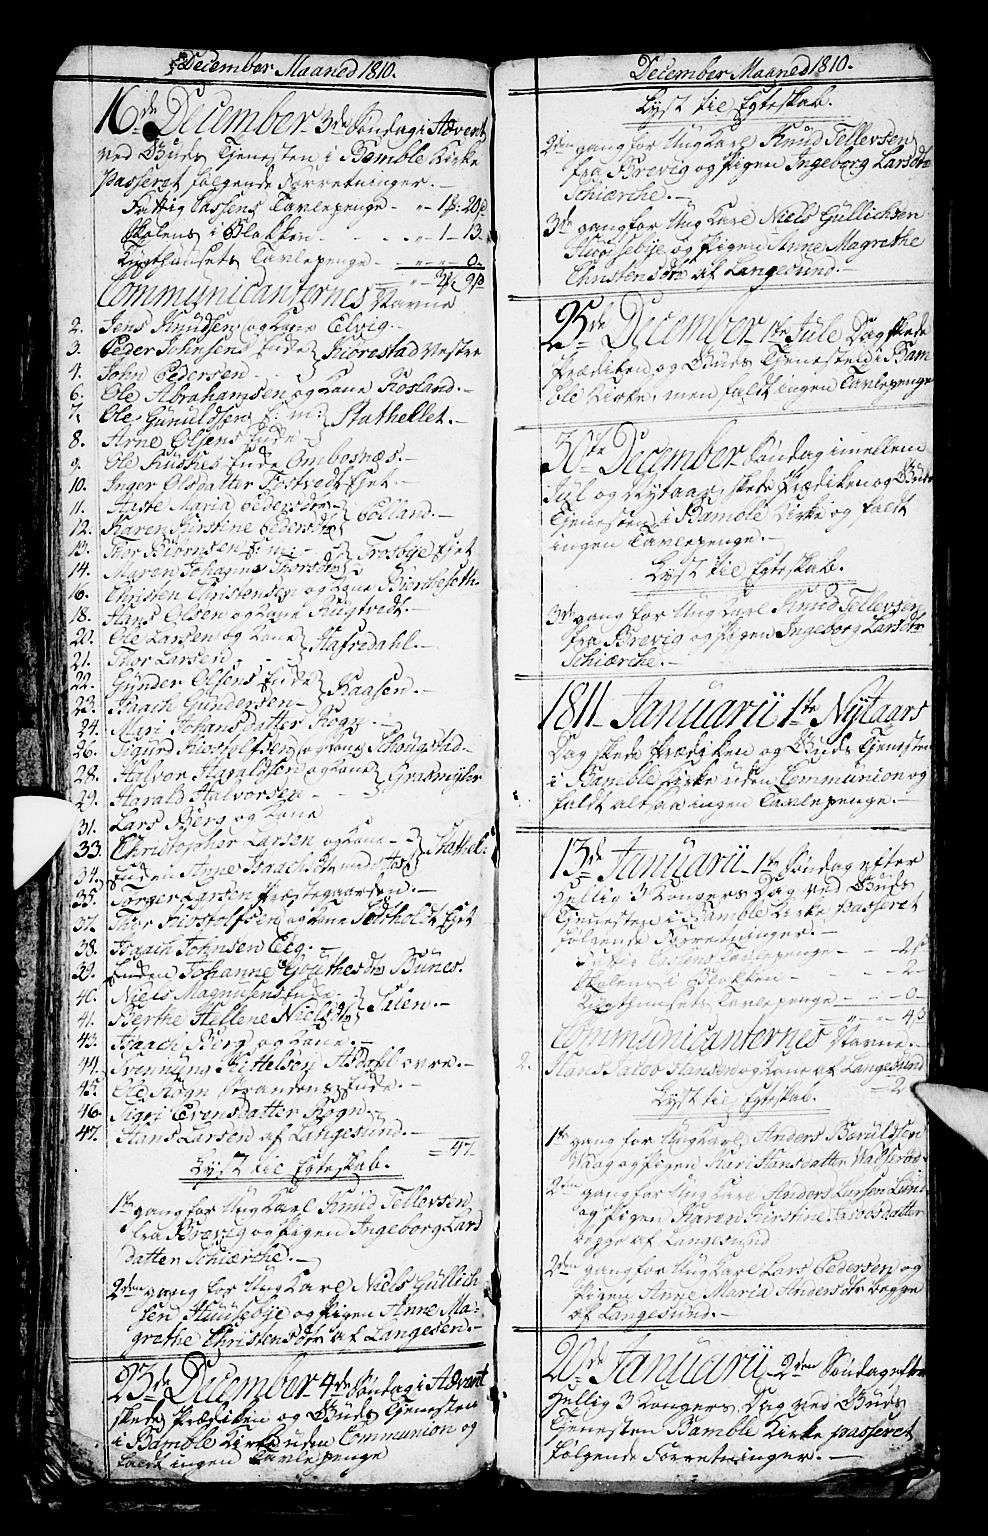 December Maaned 1810.
16de December 3de Søndag i Advent
ved Guds Tjenesten i Bamble Kirke
passeret følgende Forretninger.
Fattig Cassens Tavlepenge
Skolens i Blokken - 1 - 13.
Tugthusets Tavlepenge - 0.
Communicanternes Navne
2. Jens Knudsen og Kone Elvig.
3. Peder Johnsens Enke
4. John Pedersen
6. Ole Abrahamsen og Kone Rosland.
7. Ole Gunuldsen E: m: Stathellet.
8. Arne Olsens Enke
9. Ole Enke Ombosnæs.
10. Inger Olsdatter Tostvedt Ejet.
11. Aaste Maria Pedersdtr
12. Karen Kirstine Pedersdtr
13. Thor Biørnsen E: m: Trosbye Ejet
14. Maren Johanne Thorsdtr
16. Christen Christensen og Kone
18. Hans Olsen og Kone Rugtvedt.
20. Ole Larsen og Kone Hafsdahl.
21. Thor Larsen
22. Gunder Olsens Enke Aaasen.
23. Isaach Gundersen
24. Mari Johansdatter Rogn
26. Sigur og Kone
28. Halvor Haraldsen og Kone
29. Harald Halvorsen
31. Lars Berg og Kone
33. Christopher Larsen og Kone Stathel:
34. Enken Anne
35. Torger Larsen Præstegaarden.
37. Thor og Kone Ejet
38. Isaach Johnsen Eeg.
39. Enken Johanne Bunes.
40. Niels Magnusens Enke
41. Berthe Hellene Nielsd:
43. Isaach Berg og Kone.
44. Svennung Kittelsen Asdahl øvre.
45. Ole Rogn Strandens Enke.
46. Sigri Evensdatter Rogn
47. Hans Larsen af Langesund.
= 47
Lyst til Egteskab.
1ste gang for Ung Karl Knud Tellevsen
fra Brevig og Pigen Ingeborg Lars
datter Schiærche.
2den gang for Ung Karl Niels Gullich
sen og Pigen Anne Ma-
grethe Christensdtr af Langesun.
23de December 4de Søndag i Advent
skede Prædiken og Guds Tjenesten
i Bamble Kirke uden Communion og
faldt ingen Tavlepenge
December Maaned 1810.
Lyst til Egteskab.
2den gang for Ung Karl Knud Tellevsen
fra Brevig og Pigen Ingeborg Larsdtr
Schiærche.
3die gang for Ung Karl Niels Gullichsen
og Pigen Anne Magrethe
Christensdtr af Langesund.
25de December 1ste Jule Dag skede
Prædiken og Guds Tjenesten i Bam
ble Kirke, men faldt ingen Tavlepenge
30te December Søndag imellem
Jul og Nytaar, skede Prædiken og Guds
Tjenesten i Bamble Kirke og faldt
ingen Tavlepenge.
Lyst til Egteskab.
3die gang for Ung Karl Knud Tellevsen
fra Brevig og Pigen Ingeborg Larsdtr
Schiærche.
1811. Januarii 1ste Nytaars
Dag skede Prædiken og Guds Tjenesten
i Bamble Kirke uden Communion og
faldt altsaa ingen Tavlepenge.
13de Januarii 1ste Søndag efter
Hellig 3 Kongers Dag ved Guds
Tjenesten i Bamble Kirke passeret
følgende Forretninger.
Fattig Cassens Tavlepenge - 2
Skolens i Blokken - 2
Tugthusets Tavlepenge - 0
4
Communicanternes Navne.
2. Hans Jacob Hansen og Kone af Langesund
= 2
Lyst til Egteskab.
1ste gang for Ung Karl Anders
Waag og Pigen Kari Hansdatter
2den gang for Ung Karl Anders Larsen Lund
og Pigen Karen Kirstine Jacobsdatter
begge af Langesund
2den gang for Ung Karl Lars Pedersen og
Pigen Anne Maria Andersdtr begge
af Langesund.
20de Januarii 2den Søndag efter
Hellig 3 Kongers Dag ved Guds
Tjenesten Bamble Kirke passeret
følgende Forretninger.